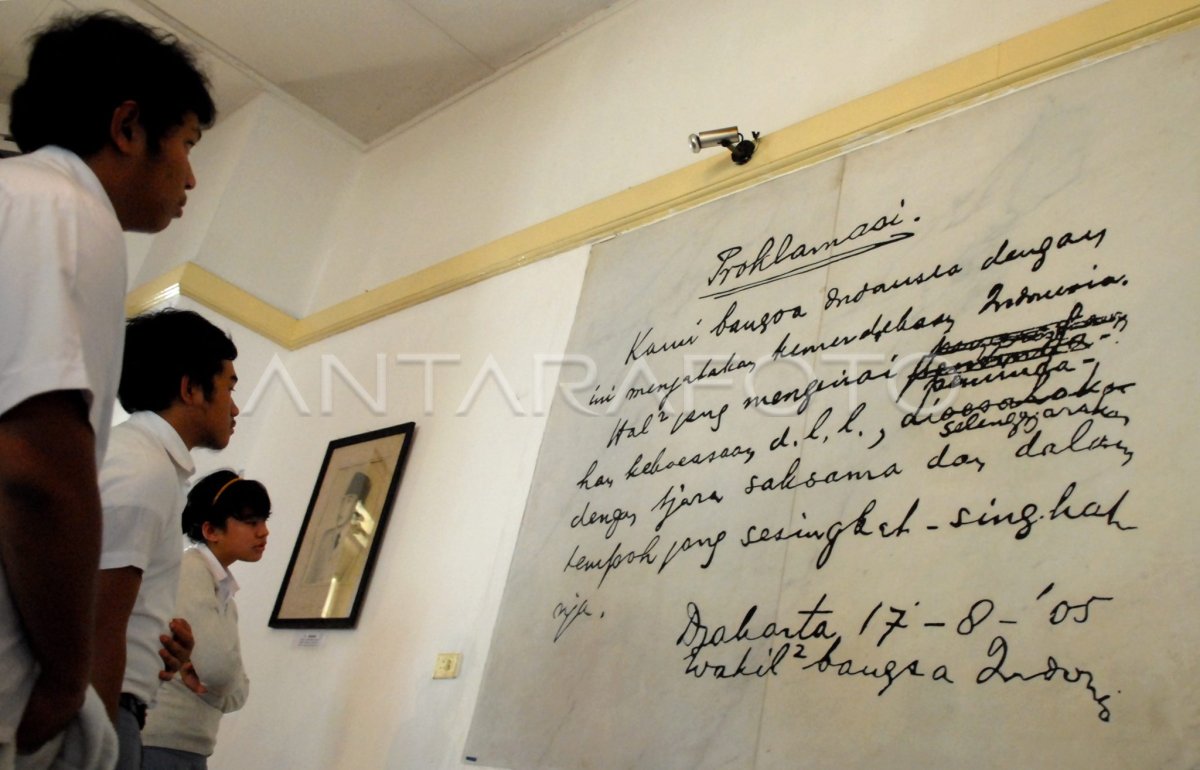 Proklamasi.
Kami bangsa Indonesia dengan
ini menjatakan kemerdekaan Indonesia.
Hal² jang mengenai
peminda-
han kekoeasaan d.l.l., dioesahakan
selenggarakan
dengan tjara saksama dan dalam
tempoh jang sesingkat-singkat
nja.
Djakarta, 17-8-'05
Wakil² bangsa Indonesi
ANTARAFOTO